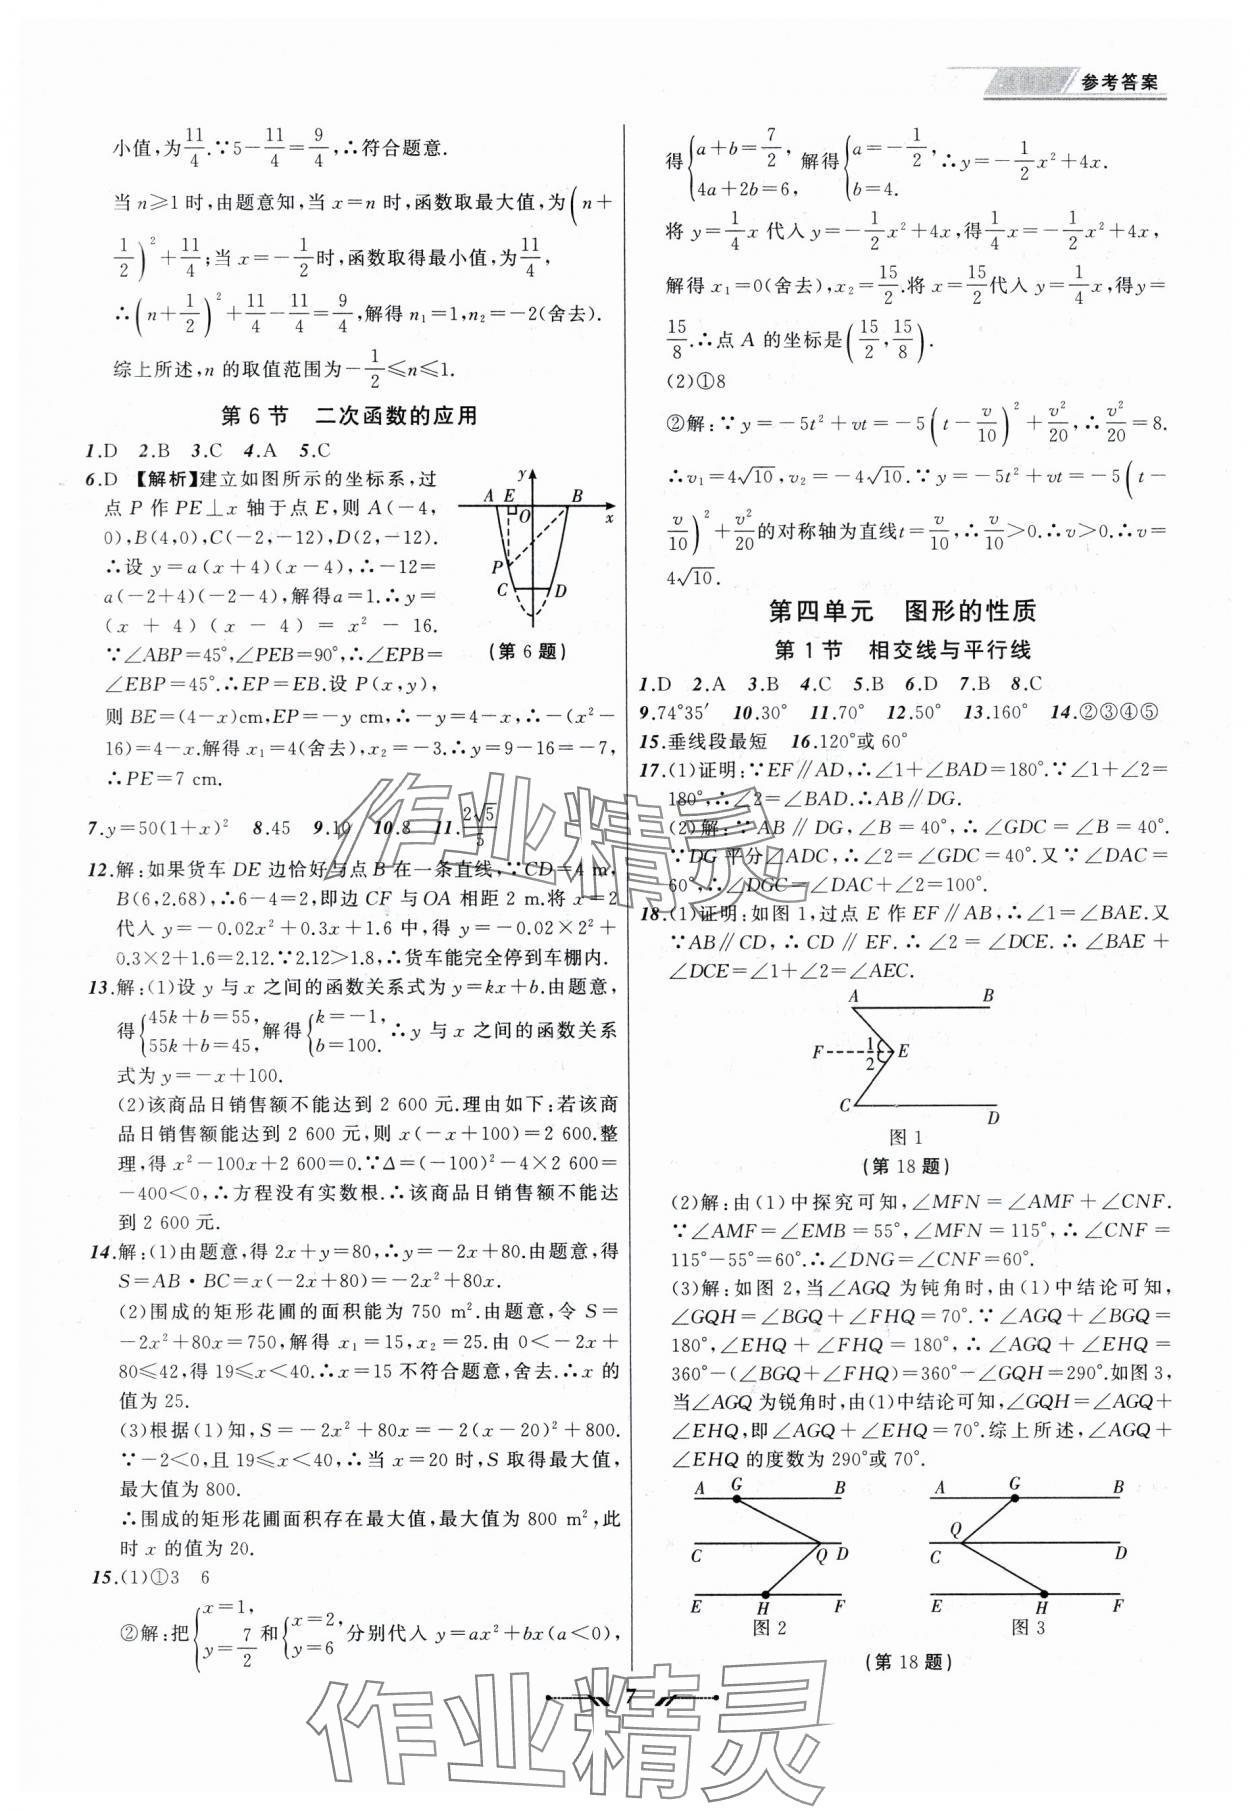 参考答案
小值,为11/4.∵5-11/4=9/4,∴符合题意.
当n≥1时,由题意知,当x=n时,函数取最大值,为(n+
1/2)²+11/4;当x=-1/2时,函数取得最小值,为11/4,
∴(n+1/2)²+11/4-11/4=9/4,解得n₁=1,n₂=-2(舍去).
综上所述,n的取值范围为-1/2≤n≤1.
第6节 二次函数的应用
1.D 2.B 3.C 4.A 5.C
6.D 【解析】建立如图所示的坐标系,过
点P作PE⊥x轴于点E,则A(-4,
0),B(4,0),C(-2,-12),D(2,-12).
∴设y=a(x+4)(x-4),∴-12=
a(-2+4)(-2-4),解得a=1.∴y=
(x+4)(x-4)=x²-16.
∵∠ABP=45°,∠PEB=90°,∴∠EPB=
∠EBP=45°.∴EP=EB.设P(x,y),
则BE=(4-x)cm,EP=-y cm,∴-y=4-x,∴-(x²-
16)=4-x.解得x₁=4(舍去),x₂=-3.∴y=9-16=-7,
∴PE=7 cm.
y
A E B
O x
P
C D
(第6题)
7.y=50(1+x)² 8.45 9.10 10.8 11.2√5/5
12.解:如果货车DE边恰好与点B在一条直线,∵CD=4 m,
B(6,2.68),∴6-4=2,即边CF与OA相距2 m.将x=2
代入y=-0.02x²+0.3x+1.6中,得y=-0.02×2²+
0.3×2+1.6=2.12.∵2.12>1.8,∴货车能完全停到车棚内.
13.解:(1)设y与x之间的函数关系式为y=kx+b.由题意,
得{45k+b=55, 55k+b=45,解得{k=-1, b=100.∴y与x之间的函数关系
式为y=-x+100.
(2)该商品日销售额不能达到2 600元.理由如下:若该商
品日销售额能达到2 600元,则x(-x+100)=2 600.整
理,得x²-100x+2 600=0.∵Δ=(-100)²-4×2 600=
-400<0,∴方程没有实数根.∴该商品日销售额不能达
到2 600元.
14.解:(1)由题意,得2x+y=80,∴y=-2x+80.由题意,得
S=AB·BC=x(-2x+80)=-2x²+80x.
(2)围成的矩形花圃的面积能为750 m².由题意,令S=
-2x²+80x=750,解得x₁=15,x₂=25.由0<-2x+
80≤42,得19≤x<40.∴x=15不符合题意,舍去.∴x的
值为25.
(3)根据(1)知,S=-2x²+80x=-2(x-20)²+800.
∵-2<0,且19≤x<40,∴当x=20时,S取得最大值,
最大值为800.
∴围成的矩形花圃面积存在最大值,最大值为800 m²,此
时x的值为20.
15.(1)①3 6
②解:把{x=1, y=7/2和{x=2, y=6分别代入y=ax²+bx(a<0),
得{a+b=7/2, 4a+2b=6,解得{a=-1/2, b=4.∴y=-1/2x²+4x.
将y=1/4x代入y=-1/2x²+4x,得1/4x=-1/2x²+4x,
解得x₁=0(舍去),x₂=15/2.将x=15/2代入y=1/4x,得y=
15/8.∴点A的坐标是(15/2,15/8).
(2)①8
②解:∵y=-5t²+vt=-5(t-v/10)²+v²/20,∴v²/20=8.
∴v₁=4√10,v₂=-4√10.∵y=-5t²+vt=-5(t-
v/10)²+v²/20的对称轴为直线t=v/10,∴v/10>0.∴v>0.∴v=
4√10.
第四单元 图形的性质
第1节 相交线与平行线
1.D 2.A 3.B 4.C 5.B 6.D 7.B 8.C
9.74°35′ 10.30° 11.70° 12.50° 13.160° 14.②③④⑤
15.垂线段最短 16.120°或60°
17.(1)证明:∵EF∥AD,∴∠1+∠BAD=180°.∵∠1+∠2=
180°,∴∠2=∠BAD.∴AB∥DG.
(2)解:∵AB∥DG,∠B=40°,∴∠GDC=∠B=40°.
∵DG平分∠ADC,∴∠2=∠GDC=40°.又∵∠DAC=
60°,∴∠DGC=∠DAC+∠2=100°.
18.(1)证明:如图1,过点E作EF∥AB,∴∠1=∠BAE.又
∵AB∥CD,∴CD∥EF.∴∠2=∠DCE.∴∠BAE+
∠DCE=∠1+∠2=∠AEC.
A B
F 1 2 E
C D
图1
(第18题)
(2)解:由(1)中探究可知,∠MFN=∠AMF+∠CNF.
∵∠AMF=∠EMB=55°,∠MFN=115°,∴∠CNF=
115°-55°=60°.∴∠DNG=∠CNF=60°.
(3)解:如图2,当∠AGQ为钝角时,由(1)中结论可知,
∠GQH=∠BGQ+∠FHQ=70°.∵∠AGQ+∠BGQ=
180°,∠EHQ+∠FHQ=180°,∴∠AGQ+∠EHQ=
360°-(∠BGQ+∠FHQ)=360°-∠GQH=290°.如图3,
当∠AGQ为锐角时,由(1)中结论可知,∠GQH=∠AGQ+
∠EHQ,即∠AGQ+∠EHQ=70°.综上所述,∠AGQ+
∠EHQ的度数为290°或70°.
A G B
C Q D
E H F
图2
A G B
C Q D
E H F
图3
(第18题)
7
作业精灵
作业精灵